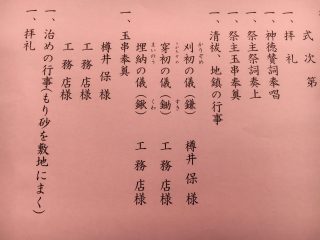 式次第
一、拝礼
一、神徳賛詞奉唱
一、祭主祭詞奏上
一、祭主玉串奉奠
一、清祓、地鎮の行事
刈初の儀(鎌) 樽井保様
穿初の儀(鋤) 工務店様
埋納の儀(鍬) 工務店様
一、玉串奉奠
樽井保様
工務店様
工務店様
一、治めの行事(もり砂を敷地にまく)
一、拝礼